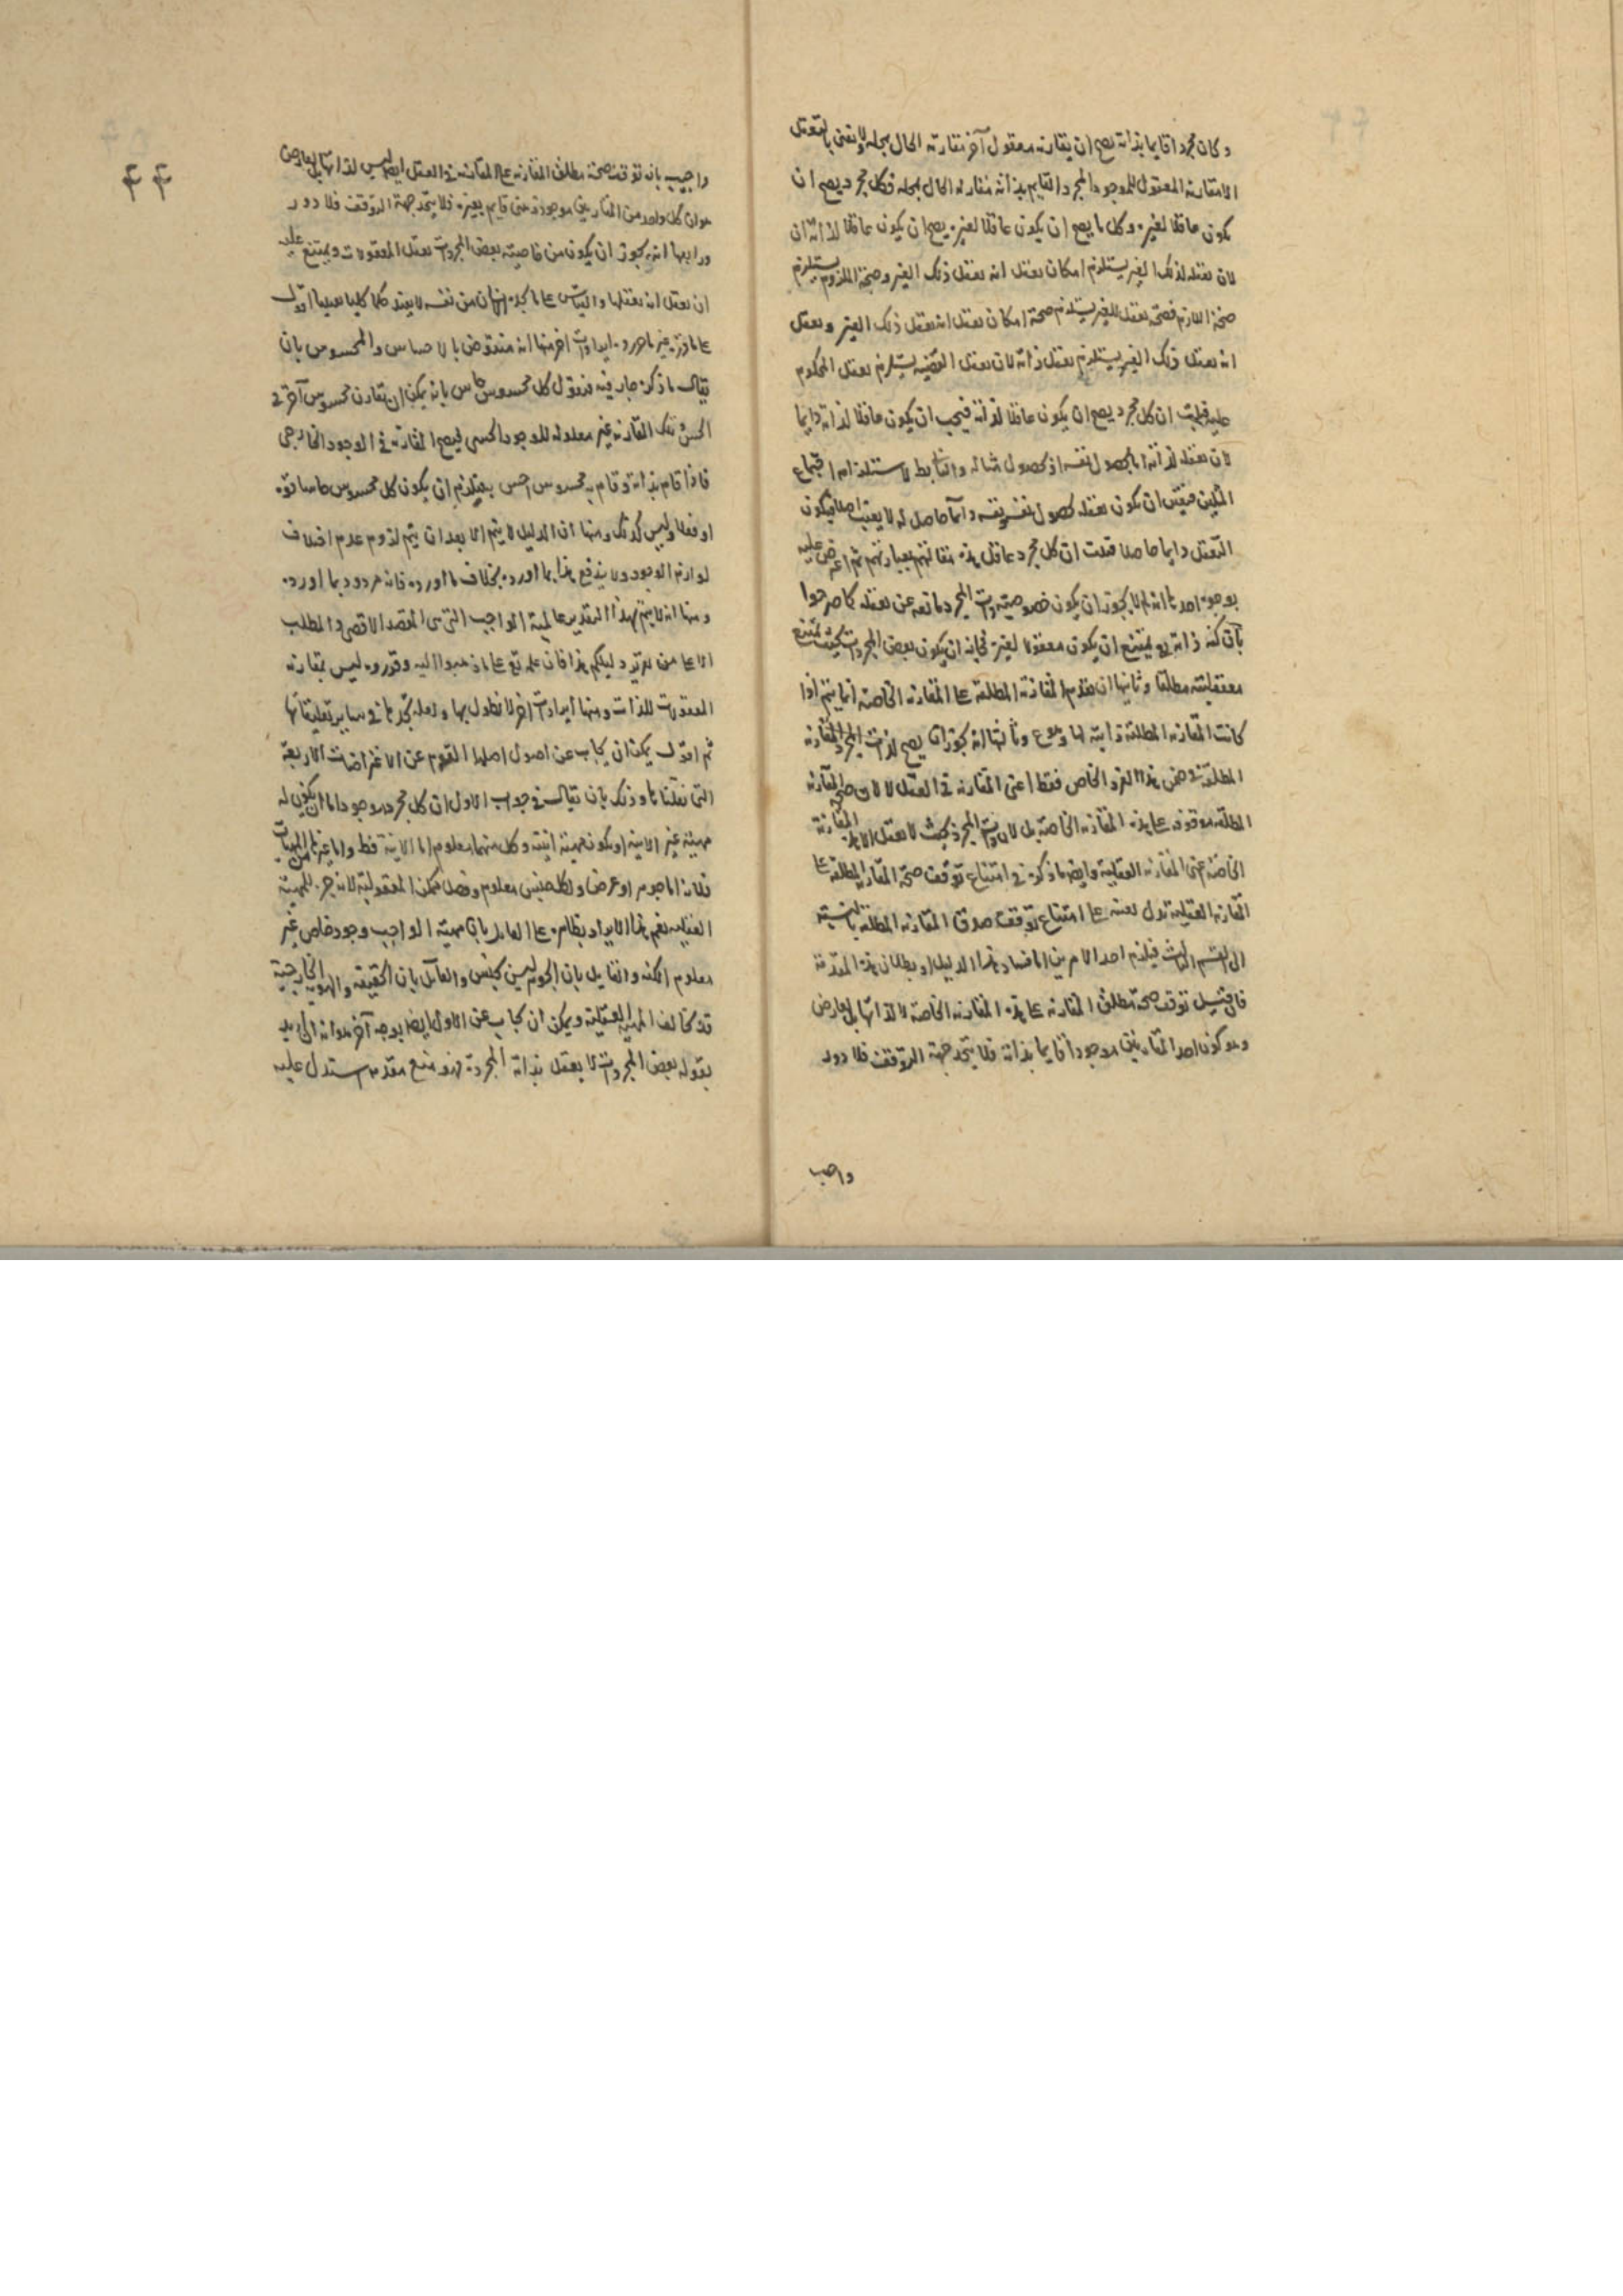 وكان مجردا قايما بذاته يصح ان يقارنه معقول آخر مقارنة الحال بمحله ولا نعنى بالتعقل
الا مقارنة المعقول للموجود المجرد القايم بذاته مقارنة الحال بمحله فكل مجرد يصح ان
يكون عاقلا لغيره وكل ما يصح ان يكون عاقلا لغيره يصح ان يكون عاقلا لذاته
لان تعقله لذلك الغير يستلزم امكان تعقل انه تعقل ذلك الغير وصحة الملزوم يستلزم
صحة اللازم فصحة تعقل الغير يستلزم صحة امكان تعقل انه تعقل ذلك الغير وتعقل
انه تعقل ذلك الغير يستلزم تعقل ذاته لان تعقل القضية يستلزم تعقل المحكوم
عليه فثبت ان كل مجرد يصح ان يكون عاقلا لذاته فيجب ان يكون عاقلا لذاته دايما
لان تعقله لذاته اما بحصول نفسه او بحصول مثاله والثانى بط لاستلزامه اجتماع
المثلين فتعين ان يكون تعقله بحصول نفسه لنفسه دائما حاصل له لا يغيب اصلا فيكون
التعقل دايما حاصلا فثبت ان كل مجرد عاقل هذه مقالتهم بعبارتهم ثم اعترض عليه
بوجوه احدها انه لم لا يجوز ان يكون خصوصية ذات المجرد مانعه عن تعقله كما صرحوا
بان كنه ذاته تع يمتنع ان يكون معقولا لغيره فجاز ان يكون بعض المجردات بحيث يمتنع
معقوليته مطلقا وثانيها ان تقدم المقارنة المطلقة على المقارنة الخاصة انما يتم اذا
كانت المقارنة المطلقة ذاتية لها وهو مم وثالثها انه يجوز ان يصح لذات المجرد المقارنة
المطلقة فى ضمن هذا الفرد الخاص فقط اعنى المقارنة فى العقل لا لان صحة المقارنة
المطلقة موقوفة على هذه المقارنة الخاصة بل لان ذات المجرد بحيث لا تقبل الا هذه المقارنة
الخاصة اعنى المقارنة العقلية وايضا ما ذكره فى امتناع توقف صحة المقارنة المطلقة على
المقارنة العقلية تدل بعينه على امتناع توقف صدق المقارنة المطلقة بالنسبة
الى القسم الثالث فيلزم احد الامرين اما فساد هذا الدليل او بطلان هذه المقدمة
فان قيل توقف صحة مطلق المقارنة على هذه المقارنة الخاصة لا لذاتها بل لعارض
وهو كون احد المتقارنين موجودا قايما بذاته فلا يتحد جهة التوقف فلا دور
واجيب
۴۴
واجيب بانه توقف صحة مطلق المقارنة على المقارنة فى العقل ايضا ليس لذاتها بل لعارض
هو ان كل واحد من المتقارنين موجود ذهنى قايم بغيره فلا يتحد جهة التوقف فلا دور
ورابعها انه يجوز ان يكون من خاصية بعض المجردات تعقل المعقولات ويمتنع عليه
ان تعقل انه تعقلها والقياس على ما يجده الانسان من نفسه لا يفيد حكما كليا يقينيا اقول
على ما قرره غير ما هو رده ايرادات اخر منها انه منقوض بالاحساس والمحسوس بان
يقال ما ذكره جار فيه فنقول كل محسوس حاس بانه يمكن ان يقارن محسوس آخر فى
الحس وتلك المقارنة غير معلولة للوجود الحسى فيصح المقارنة فى الوجود الخارجى
فاذا قام بذاته وقام به محسوس احس به فيلزم ان يكون كل محسوس حاسا قوة
او فعلا وليس كذلك ومنها ان الدليل لا يتم الا بعد ان يتم لزوم عدم اختلاف
لوازم الوجود ولا يندفع هذا بما اورده بخلاف ما اورده فانه مردود بما اورده
ومنها انه لا يتم بهذا التقدير عالمية الواجب التى هى المقصد الاقصى والمطلب
الاعلى من تزييد دليلكم هذا فان علمه تع على ما ذهبوا اليه وقرروه ليس بمقارنة
المعقولات للذات ومنها ايرادات اخر لا نطول بها ولعله تجدها فى ساير تعليقاتها
ثم اقول يمكن ان يجاب عن اصول اصلها القوم عن الاعتراضات الاربعة
التى نقلناها وذلك بان يقال فى جواب الاول ان كل مجرد موجود اما ان يكون له
مهية غير الانية او يكون مهيته انيته وكل منهما معلوم اما الانية فظ واما غيرها من المهيات
فلانه اما جوهر او عرض ولكل جنس معلوم وفصل ممكن المعقولية لانه جزء للمهية
العقلية نعم هذا الايراد بظاهره على القايل بان مهية الواجب وجود خاص غير
معلوم الكنه والقايل بان الجوهر ليس بجنس والقائل بان الحقيقة والهوية الخارجية
قد يخالف المهية العقلية ويمكن ان يجاب عن الاول ايضا بوجه آخر هو انه ان اريد
بقوله بعض المجردات لا يعقل بذاته المجردة فهو منع مقدمة استدل عليه